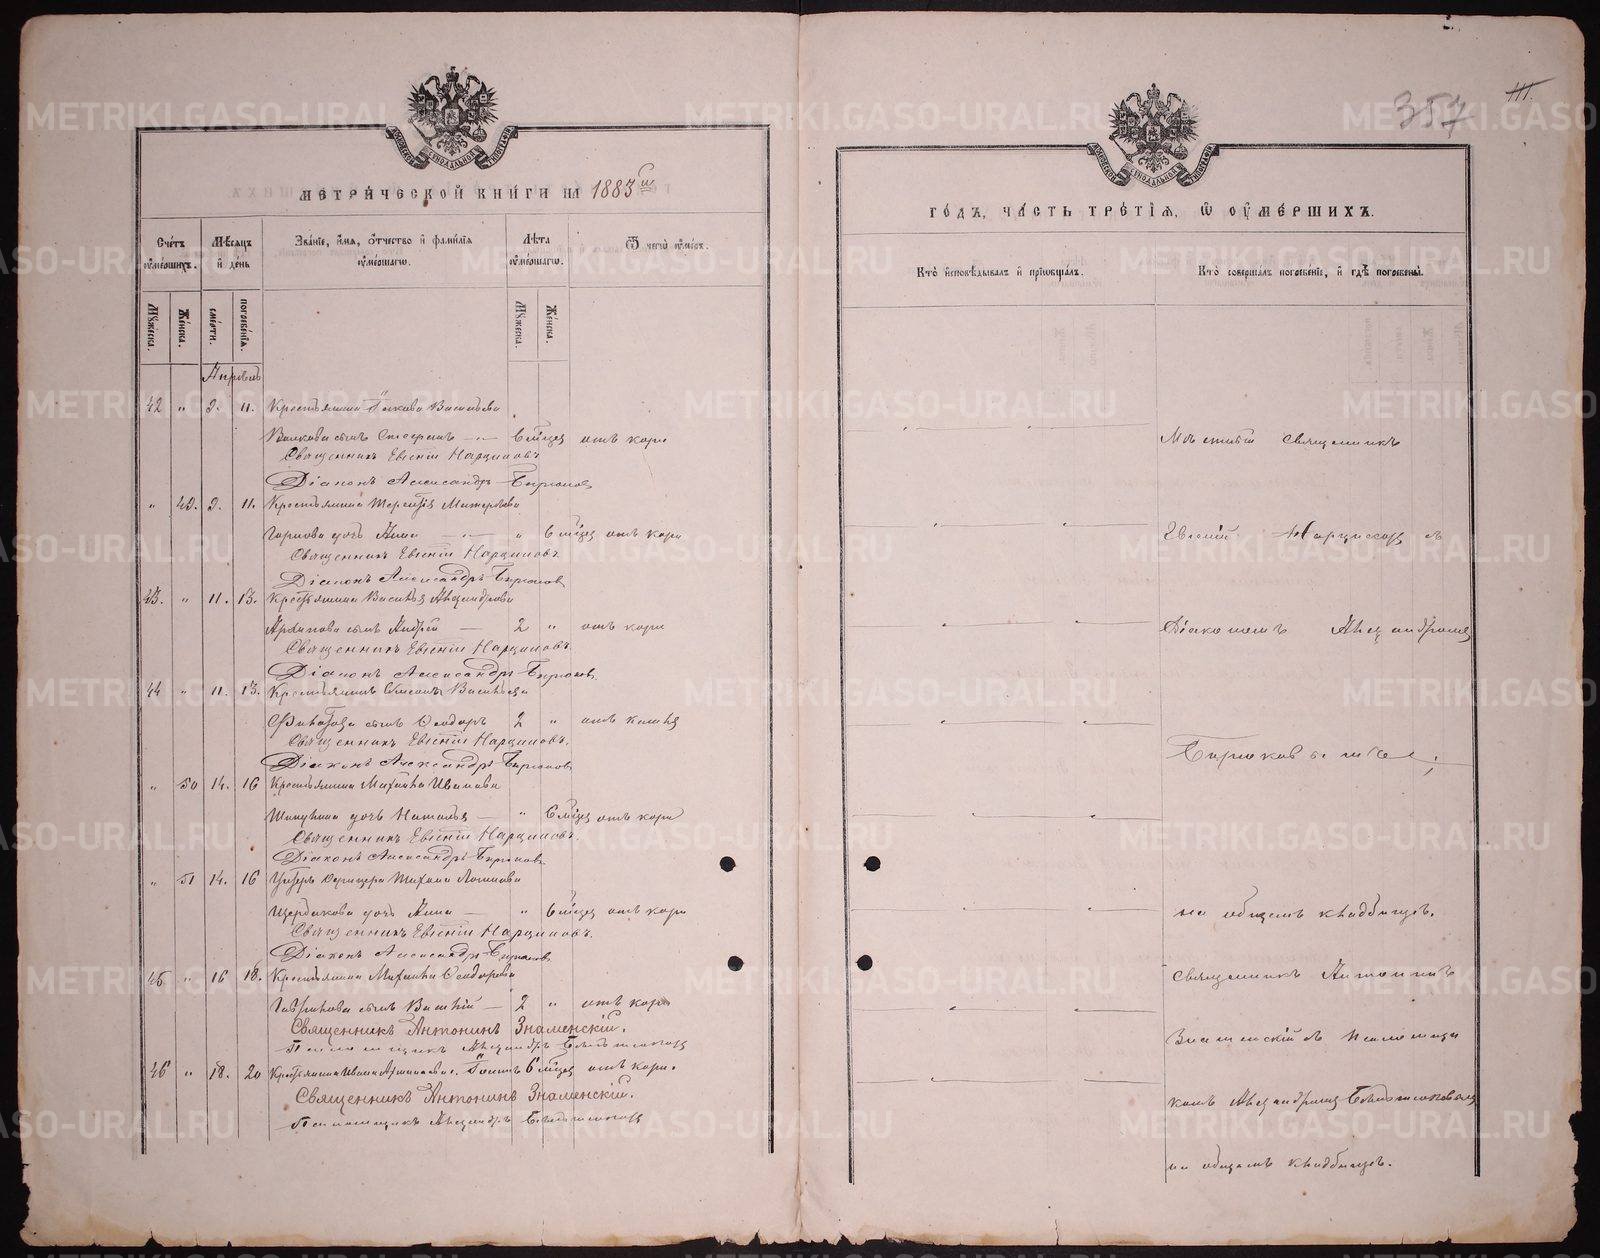 МЕТРИЧЕСКОЙ КНИГИ НА 1883 й
Счетъ умершихъ.
Мѣсяцъ и день
Званіе, имя, отчество и фамилія умершаго.
Лѣта умершаго.
Отъ чего умеръ.
Мужеска.
Женска.
смерти.
погребенія.
Мужеска.
Женска.
Апрѣль
42 " 9. 11. Крестьянина Якова Васильева
Волкова сынъ 6 мѣсяц отъ кори
Священникъ Евгеній Нарциссовъ
Діаконъ Александръ Бирюков
" 49. 9. 11. Крестьянина Терентія
дочь Анна — " 6 мѣсяц отъ кори
Священникъ Евгеній Нарциссовъ.
Діаконъ Александръ Бирюков
43. " 11. 13. Крестьянина Василья Александрова
Архипова сынъ Андрей — 2 " отъ кори
Священникъ Евгеній Нарциссовъ.
Діаконъ Александръ Бирюков
44 " 11. 13. Васильева
сынъ Ѳеодоръ 2 " отъ кашля
Священникъ Евгеній Нарциссовъ.
Діаконъ Александръ Бирюков
" 50 14. 16 Крестьянина Михаила Иванова
дочь Наталья — " 6 мѣсяц отъ кори
Священникъ Евгеній Нарциссовъ.
Діаконъ Александръ Бирюков
" 51 14. 16 Унтеръ Офицера
Щербакова дочь Анна — " 6 мѣсяц отъ кори
Священникъ Евгеній Нарциссовъ.
Діаконъ Александръ Бирюков
45 " 16 18. Крестьянина Михаила Ѳеодорова
Гаврилова сынъ Василій — 2 " отъ кори
Священникъ Антонинъ Знаменскій.
Псаломщикъ Александръ
46 " 18. 20 Крестьянина Ивана 6 мѣсяц отъ кори.
Священникъ Антонинъ Знаменскій.
Псаломщикъ Александръ
357
111.
ГОДЪ, ЧАСТЬ ТРЕТІЯ, О УМЕРШИХЪ.
Кто исповѣдывалъ и пріобщалъ.
Кто совершалъ погребеніе, и гдѣ погребены.
Мѣстный священникъ
Евгеній Нарциссовъ съ
Діакономъ Александромъ
Бирюковымъ;
на общемъ кладбищѣ.
Священникъ Антонинъ
Знаменскій съ псаломщи
комъ Александромъ
на общемъ кладбищѣ.
METRIKI.GASO-URAL.RU